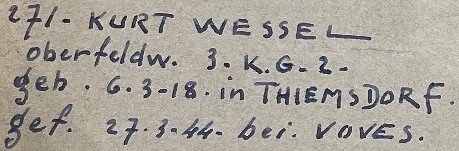 271- KURT WESSEL
oberfeldw. 3. K.G.2-
geb. 6.3-18. in THIEMSDORF.
gef. 27.3-44- bei. VOVES.